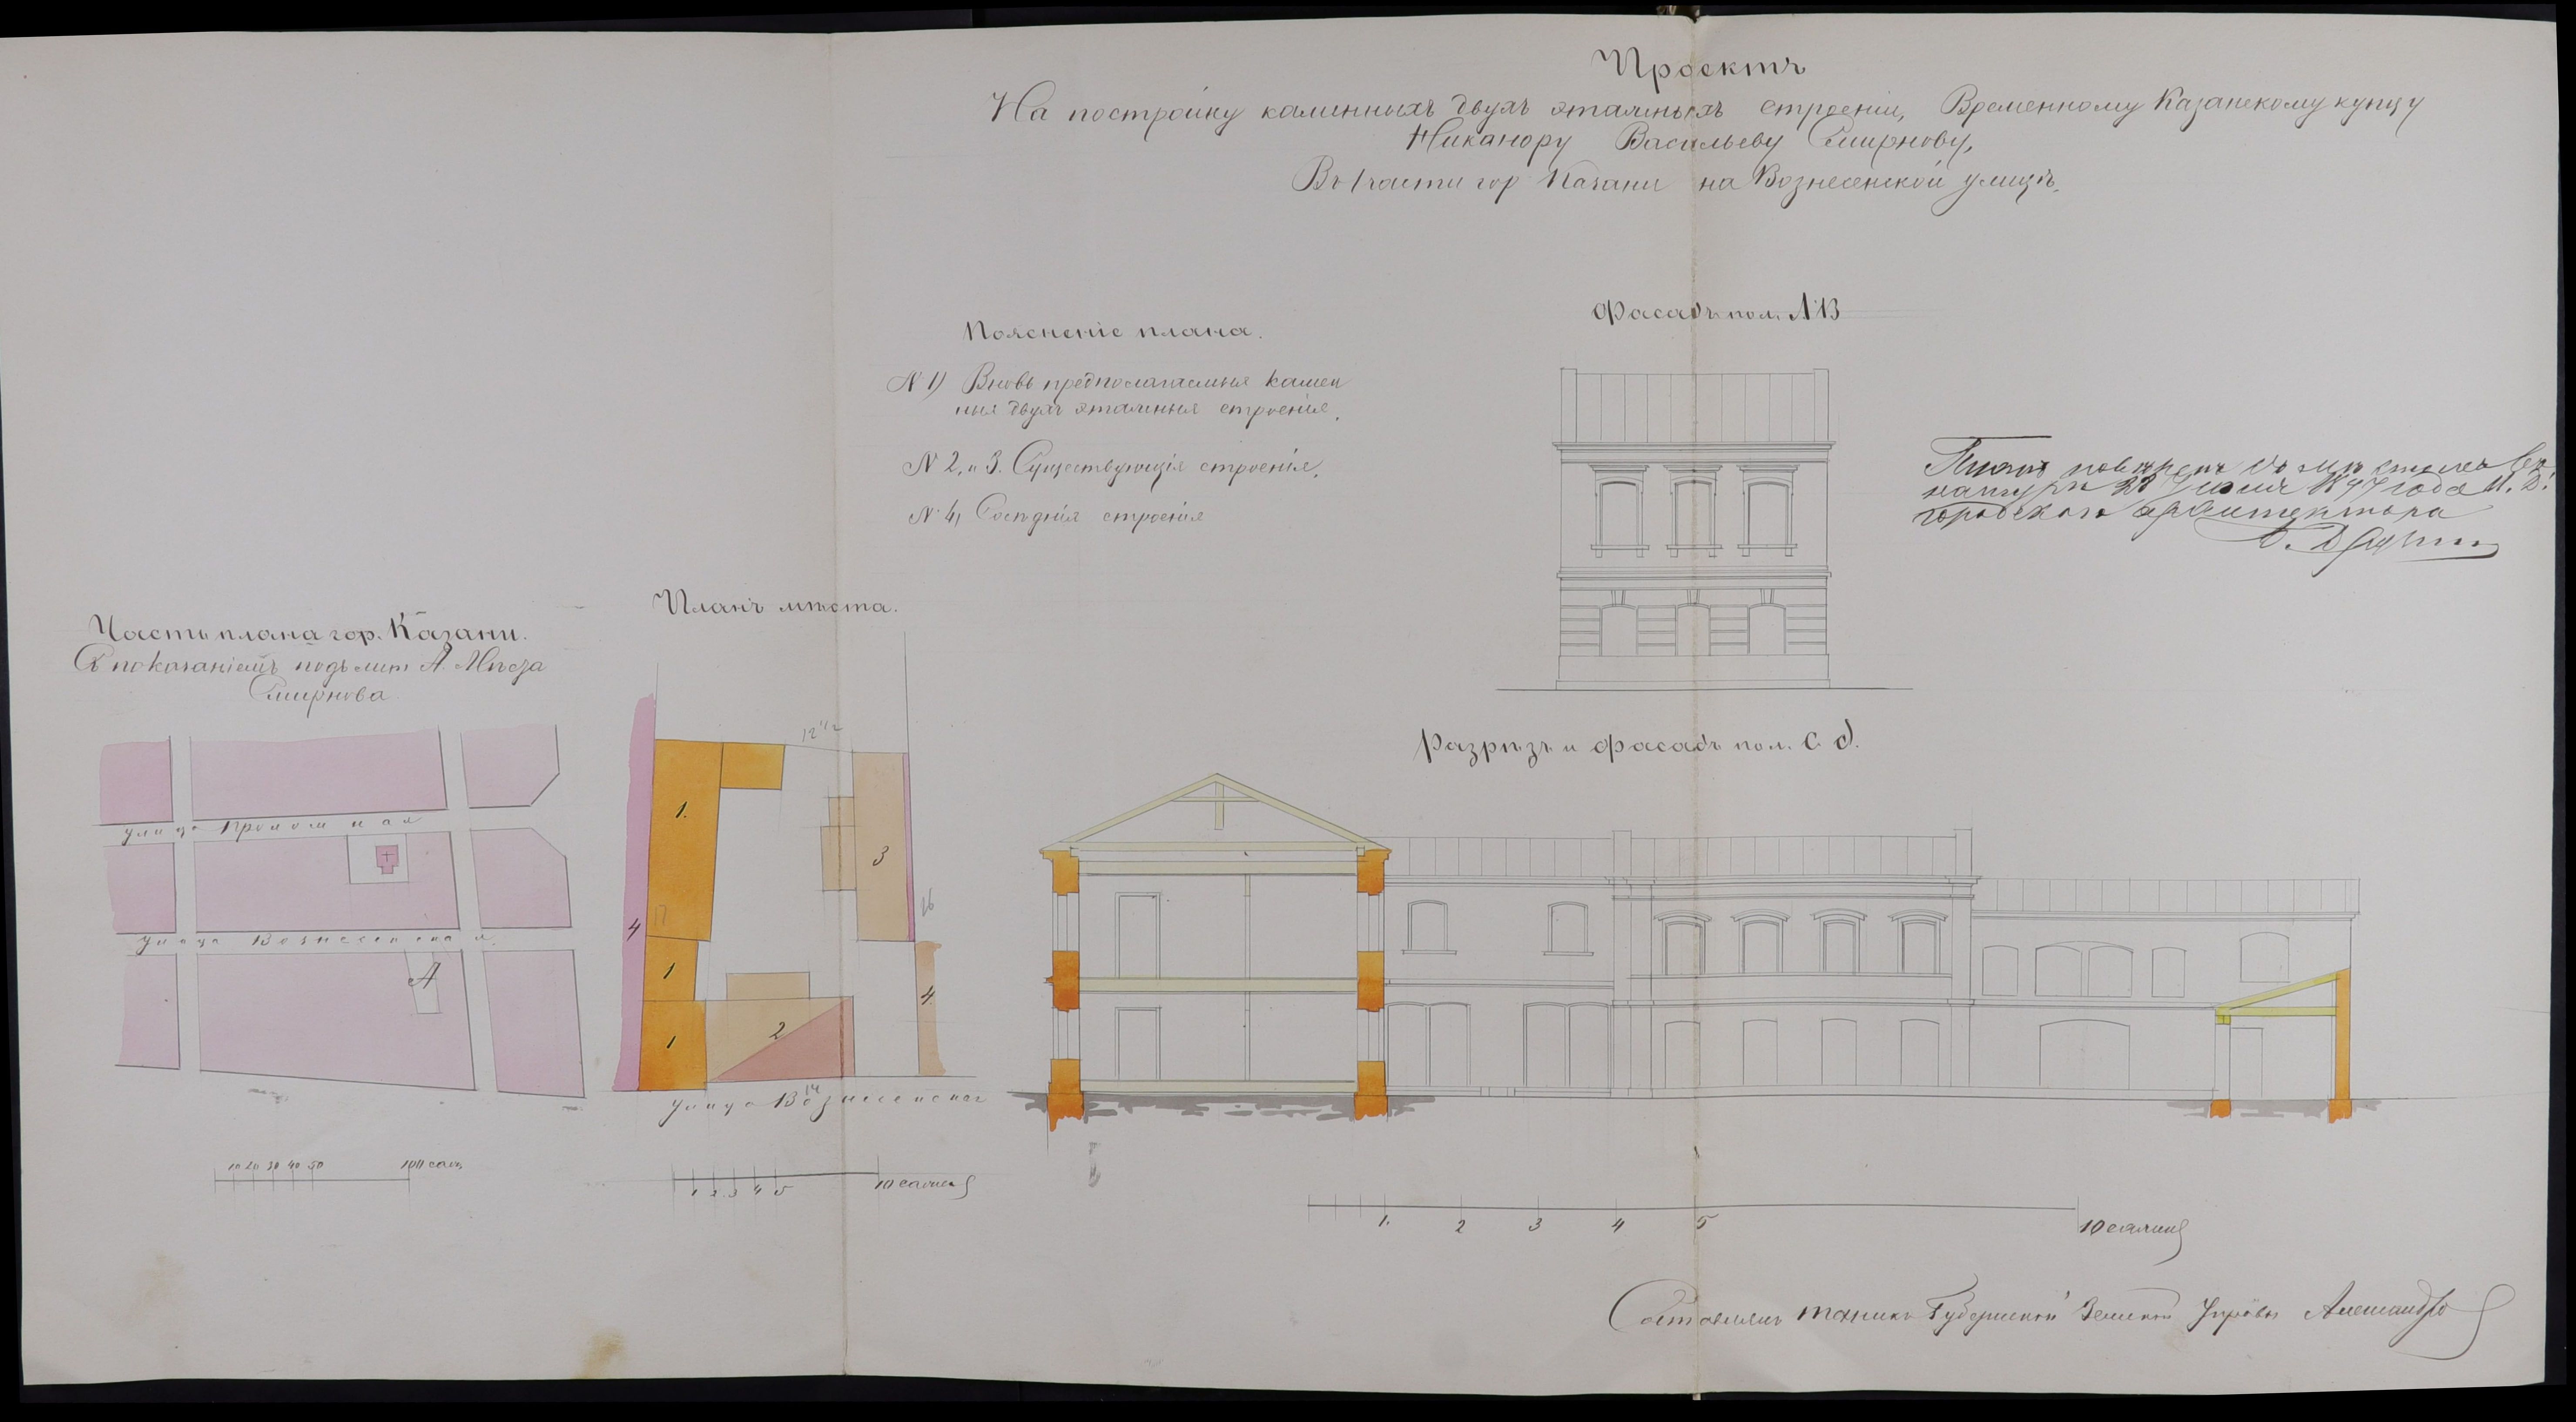 Проектъ
На постройку каменныхъ двухъ этажныхъ строеній, Временному Казанскому купцу
Никанору Васильеву Смирнову,
Въ 1 части гор Казани на Вознесенской улицѣ.
Фасадъ по л. АВ
Поясненіе плана.
N 1) Вновь предполагаемыя камен
ныя двухъ этажныя строенія.
N 2, и 3. Существующія строенія.
N 4, Сосѣднія строенія
Планъ повѣренъ съ мѣстомъ въ
натурѣ 28 1897 года И. Д.
городского архитектора
Планъ мѣста.
Часть плана гор. Казани.
Съ показаніемъ подъ лит А. Мѣста
Смирнова.
Разрѣзъ и фасадъ по л. С d.
улица Проломная
улица Вознесенская
А
12 1/2
1.
3
17
16
4
1
4
1
2
14
улица Вознесенская
10 20 30 40 50 100 саж
1 2 3 4 5 10 сажен
1. 2 3 4 5 10 сажен
Составлялъ техникъ Губернской Земской Управы